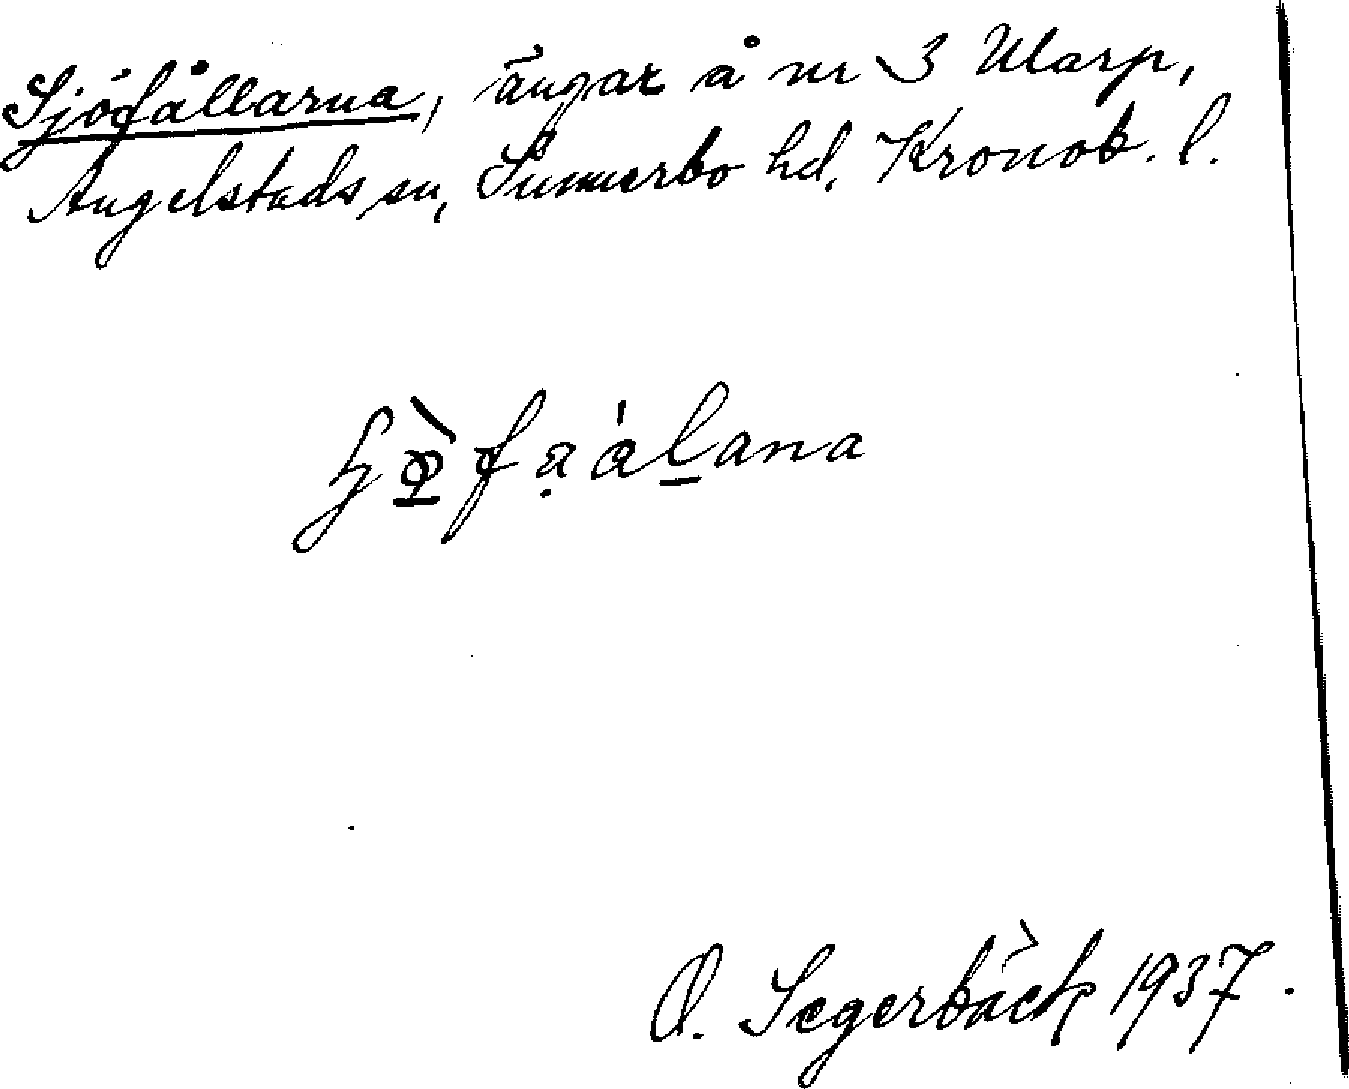 Sjöfållarna, ängar å nr 3 Ularp,
Angelstads sn, Sunnerbo hd, Kronob. l.
O. Segerbäck 1937.